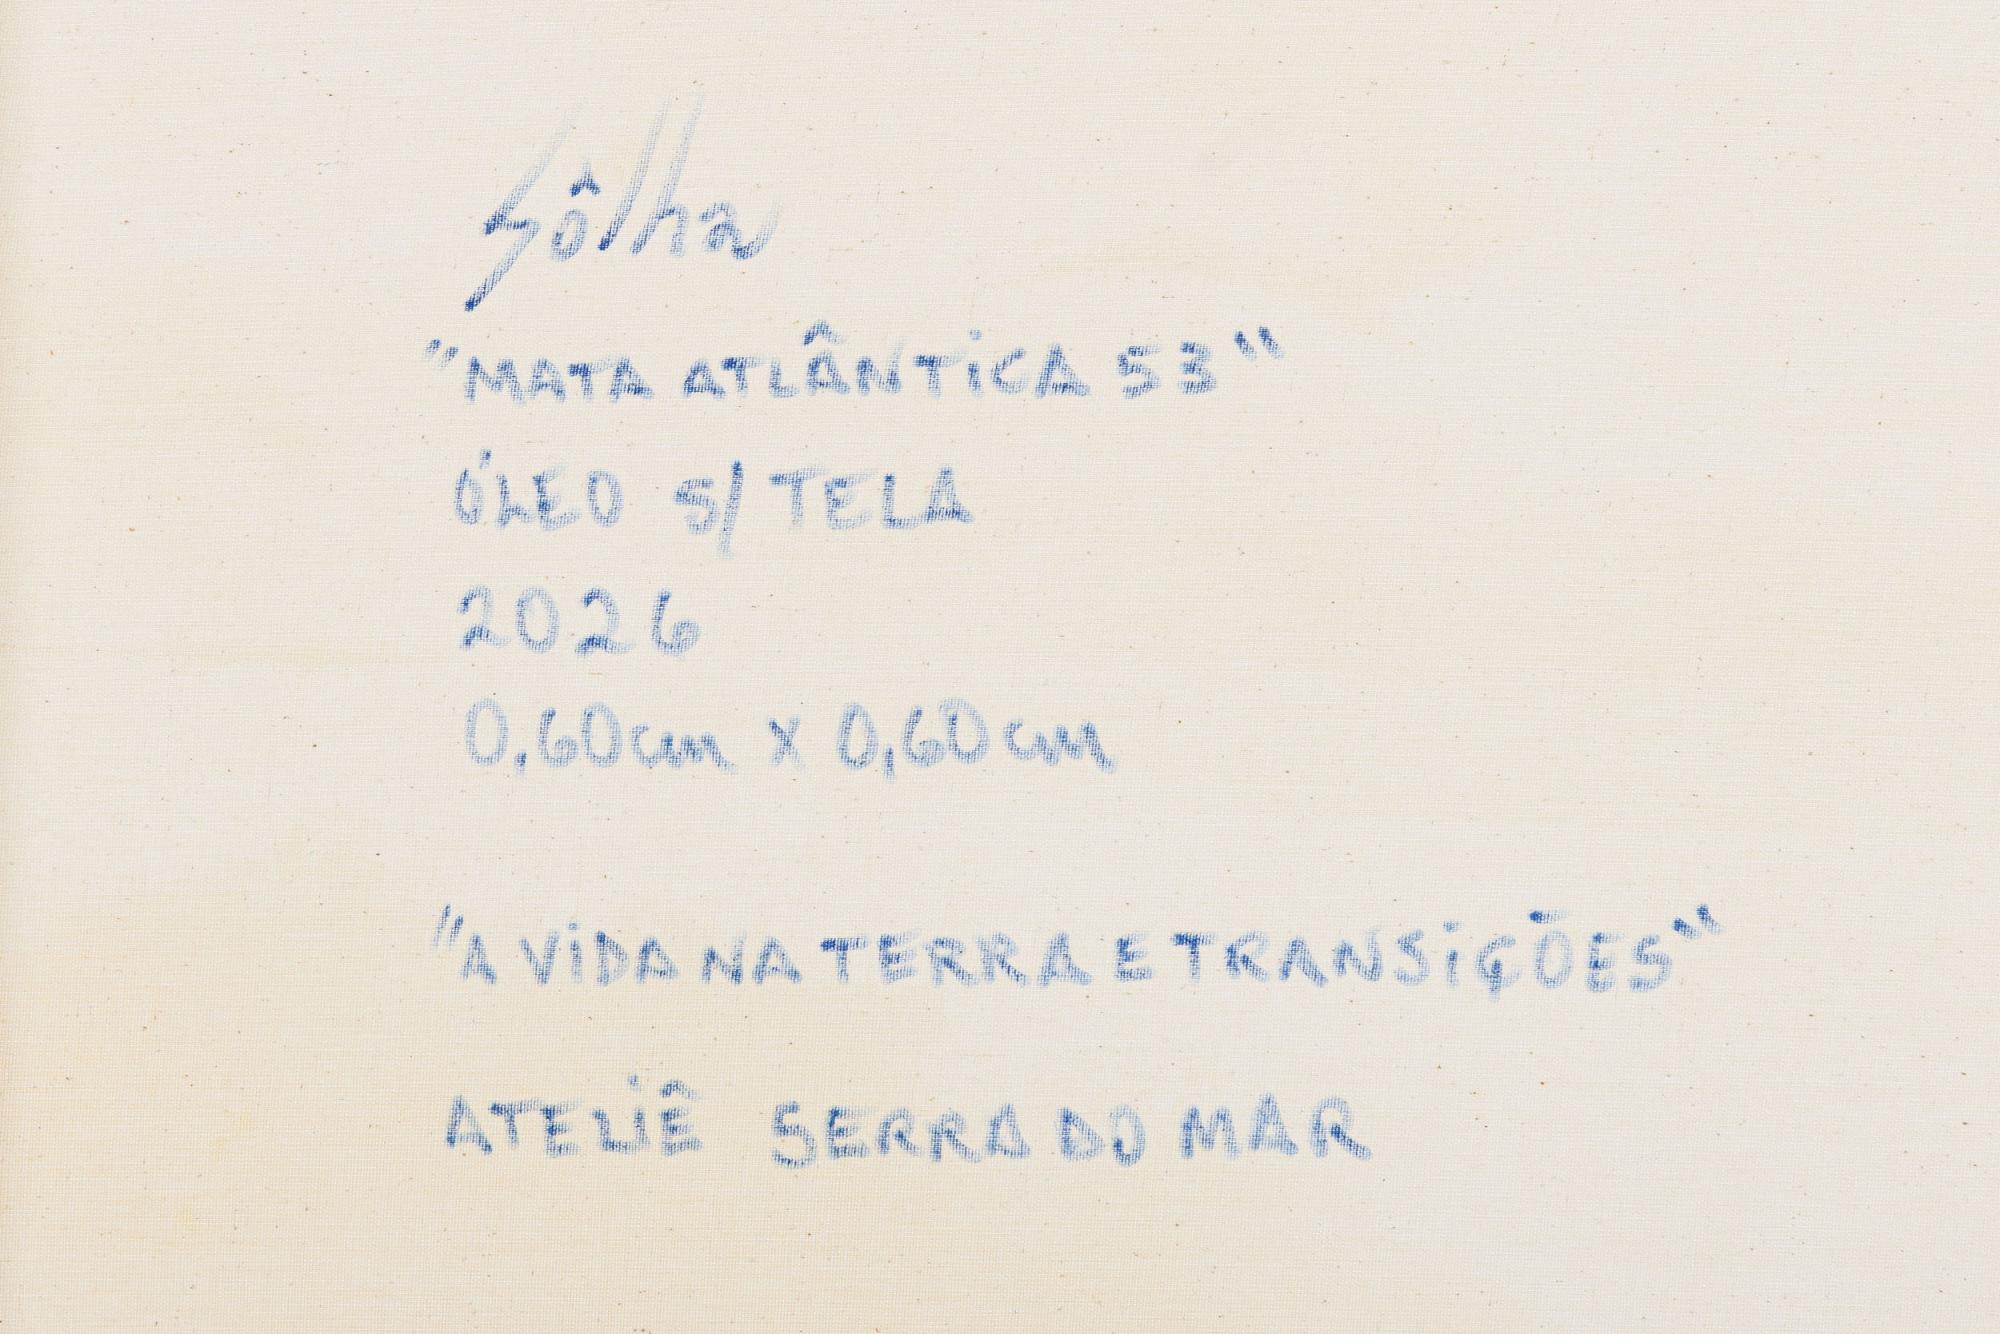 Sôlha
"MATA ATLÂNTICA 53"
ÓLEO S/ TELA
2026
0,60cm x 0,60cm
"A VIDA NA TERRA E TRANSIÇÕES"
ATELIÊ SERRA DO MAR